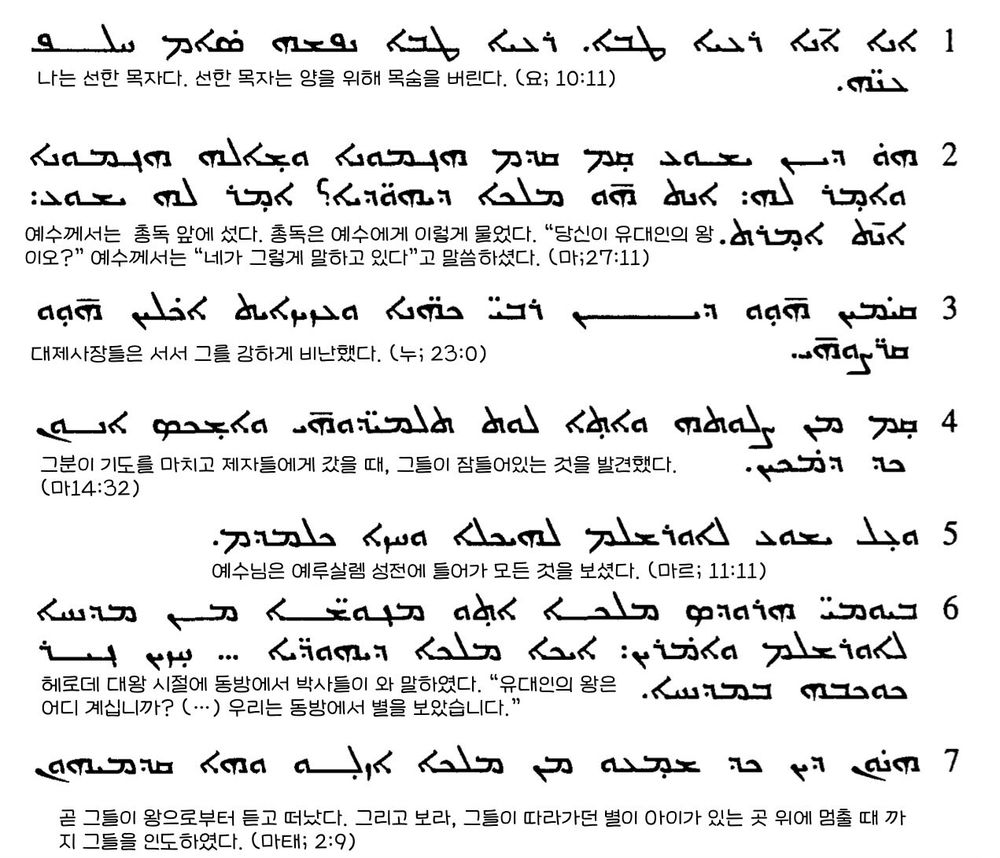 1 ܐܢܐ ܐܢ̄ܐ ܪܥܝܐ ܛܒܐ. ܪܥܝܐ ܛܒܐ ܢܦܫܗ ܣܐܡ ܚܠܦ
ܥܢ̈ܗ.
나는 선한 목자다. 선한 목자는 양을 위해 목숨을 버린다. (요; 10:11)
2 ܗܘ ܕܝܢ ܝܫܘܥ ܩܡ ܩܕܡ ܗܓܡܘܢܐ ܘܫܐܠܗ ܗܓܡܘܢܐ
ܘܐܡܪ ܠܗ: ܐܢܬ ܗ̄ܘ ܡܠܟܐ ܕܝܗܘ̈ܕܝܐ؟ ܐܡܪ ܠܗ ܝܫܘܥ:
ܐܢ̄ܬ ܐܡܪܬ.
예수께서는 총독 앞에 섰다. 총독은 예수에게 이렇게 물었다. “당신이 유대인의 왕
이오?” 예수께서는 “네가 그렇게 말하고 있다”고 말씀하셨다. (마;27:11)
3 ܩܝܡܝܢ ܗ̄ܘܘ ܕܝܢ ܪܒܝ̈ ܟܗ̈ܢܐ ܘܥܙܝܙܐܝܬ ܐܟܠܝܢ ܗ̄ܘܘ
ܩܪ̈ܨܘܗ̄ܝ.
대제사장들은 서서 그를 강하게 비난했다. (누; 23:0)
4 ܩܡ ܡܢ ܨܠܘܬܗ ܘܐܬܐ ܠܘܬ ܬܠܡܝ̈ܕܘܗ̄ܝ ܘܐܫܟܚ ܐܢܘܢ
ܟܕ ܕܡܟܝܢ.
그분이 기도를 마치고 제자들에게 갔을 때, 그들이 잠들어있는 것을 발견했다.
(마14:32)
5 ܘܥܠ ܝܫܘܥ ܠܐܘܪܫܠܡ ܠܗܝܟܠܐ ܘܚܙܐ ܟܠܡܕܡ.
예수님은 예루살렘 성전에 들어가 모든 것을 보셨다. (마르; 11:11)
6 ܒܝܘܡܝ̈ ܗܪܘܕܣ ܡܠܟܐ ܐܬܘ ܡܓܘ̈ܫܐ ܡܢ ܡܕܢܚܐ
ܠܐܘܪܫܠܡ ܘܐܡܪܝܢ: ܐܝܟܐ ܡܠܟܐ ܕܝܗܘ̈ܕܝܐ ... ܚܙܝܢ ܓܝܪ
ܟܘܟܒܗ ܒܡܕܢܚܐ.
헤로데 대왕 시절에 동방에서 박사들이 와 말하였다. “유대인의 왕은
어디 계십니까? (…) 우리는 동방에서 별을 보았습니다.”
7 ܗܢܘܢ ܕܝܢ ܟܕ ܫܡܥܘ ܡܢ ܡܠܟܐ ܐܙܠܘ ܘܗܐ ܩܕܡܝܗܘܢ
곧 그들이 왕으로부터 듣고 떠났다. 그리고 보라, 그들이 따라가던 별이 아이가 있는 곳 위에 멈출 때 까
지 그들을 인도하였다. (마태; 2:9)